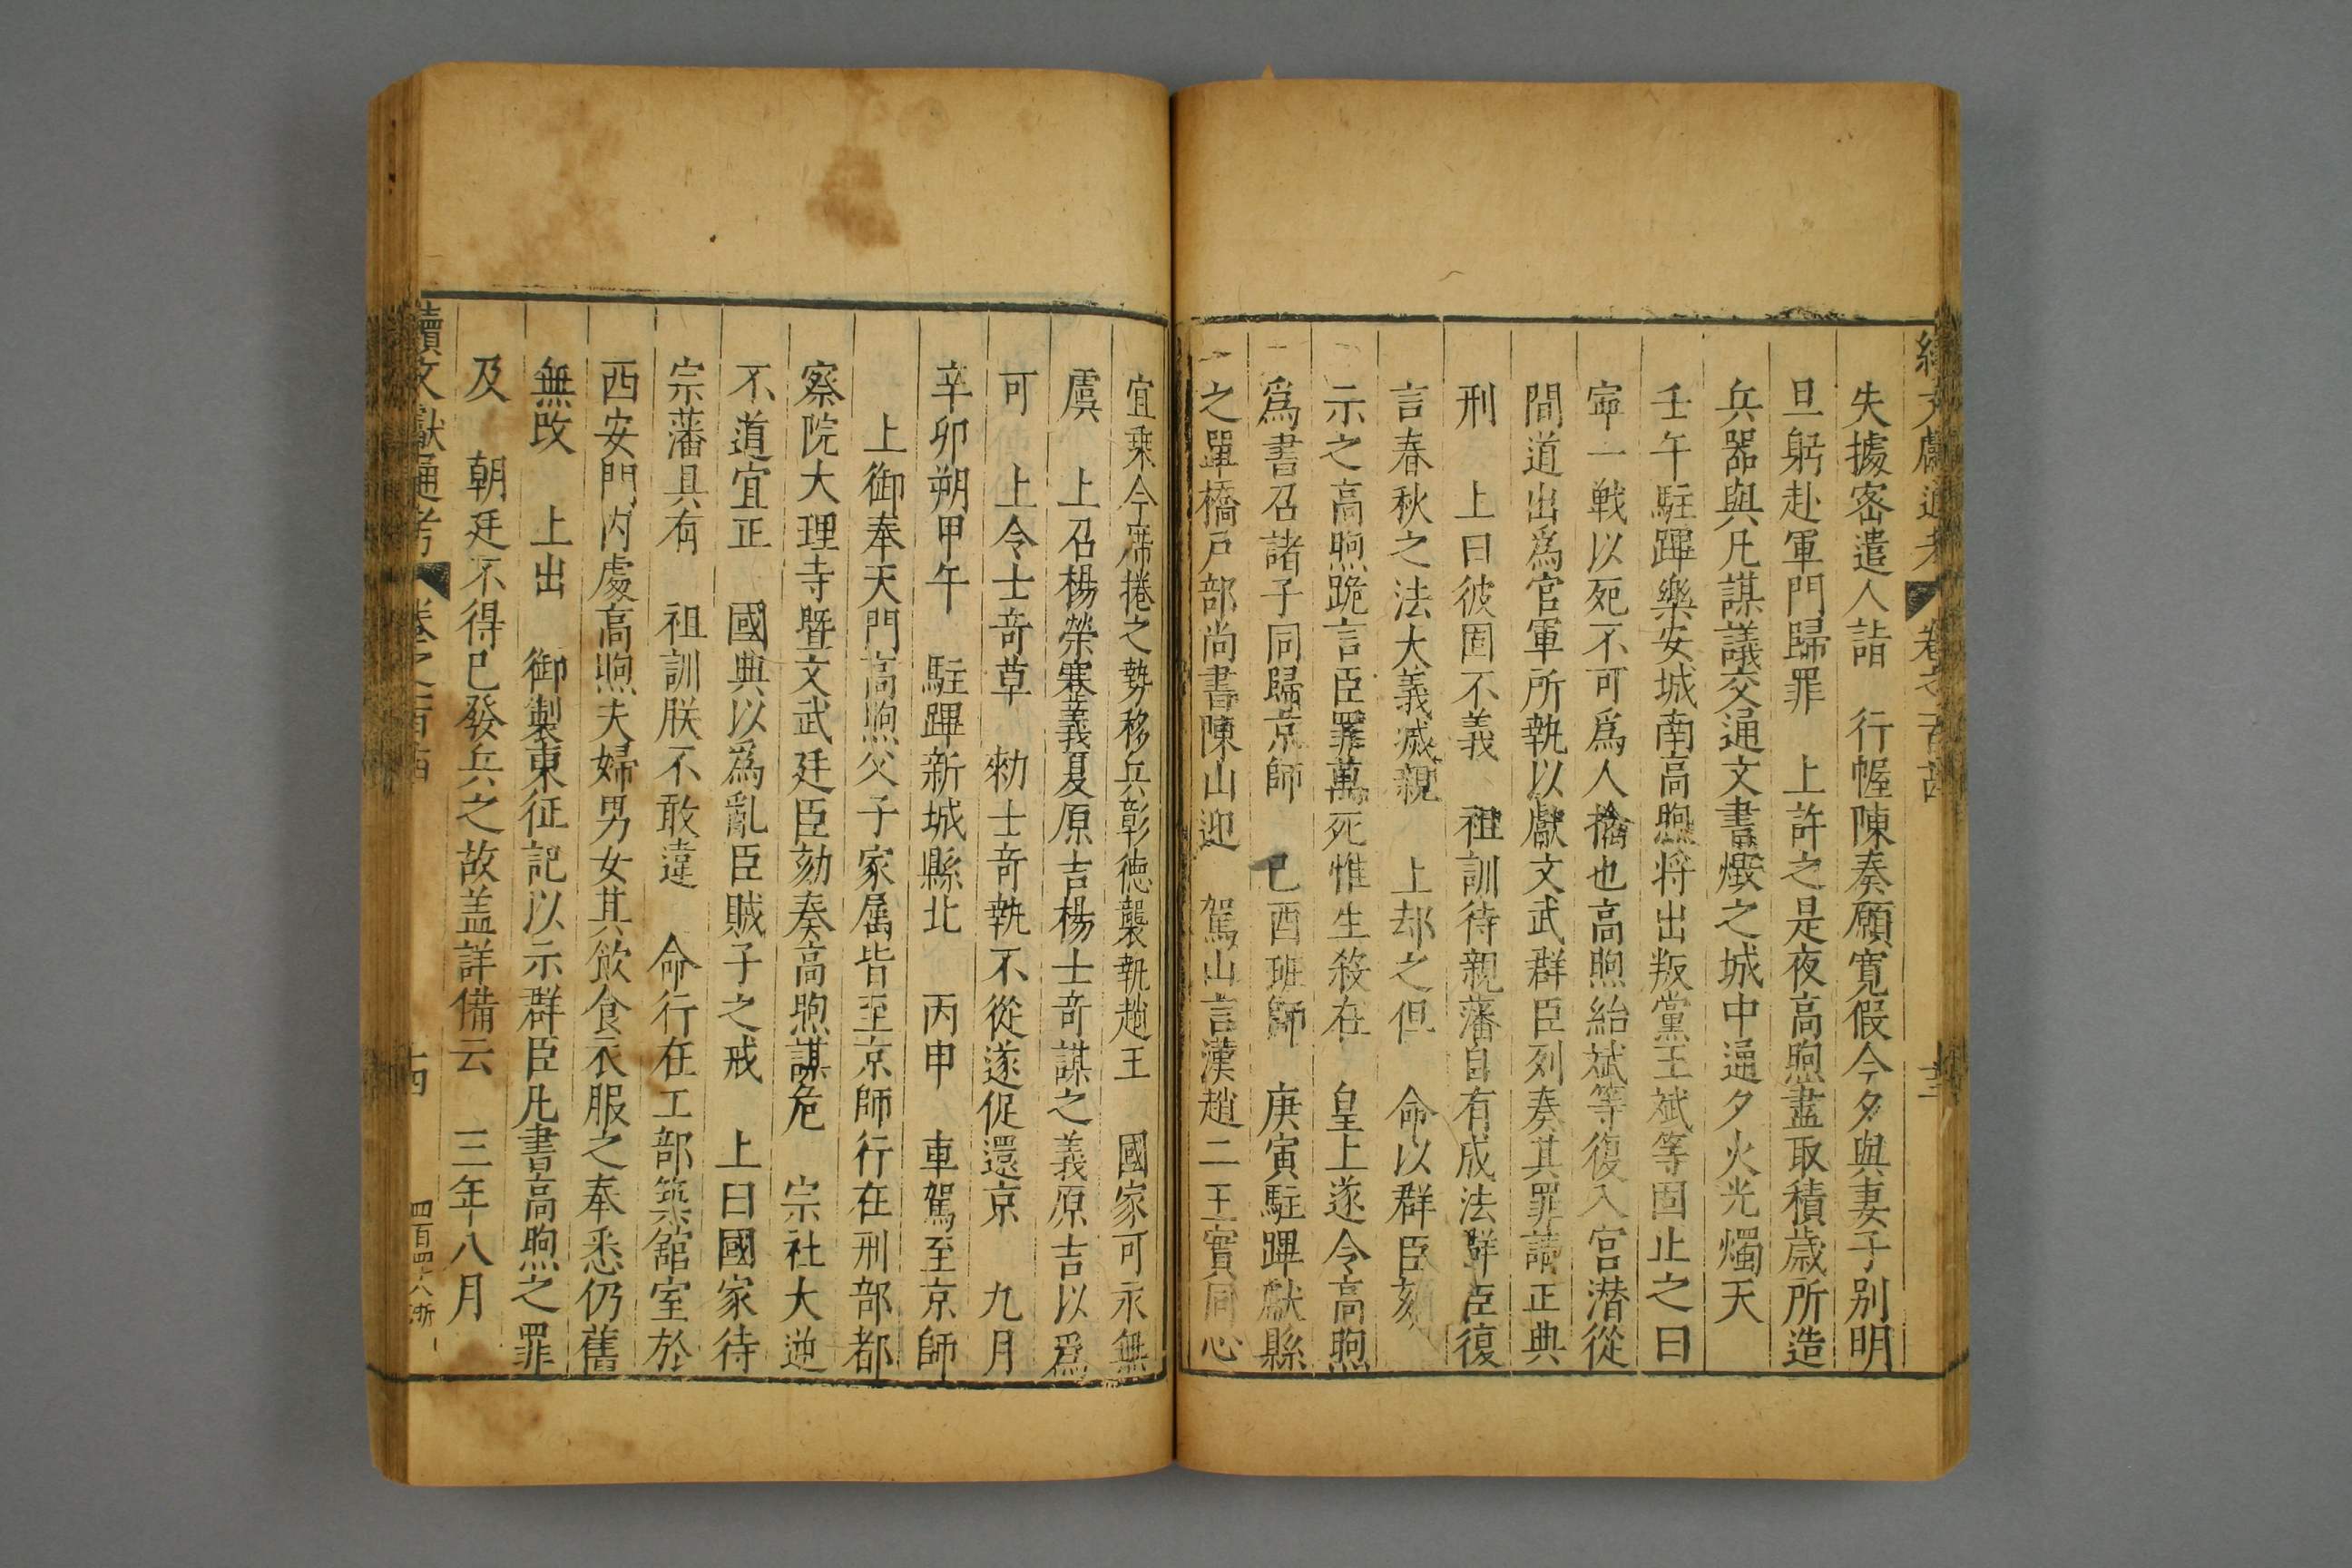 續文獻通考 卷之一百 十三
失據密遣人詣 行幄陳奏願寬假今夕與妻子别明
旦躬赴軍門歸罪 上許之是夜高煦盡取積歲所造
兵器與凡謀議交通文書燬之城中通夕火光燭天
壬午駐蹕樂安城南高煦将出叛黨王斌等固止之曰
寧一戰以死不可爲人擒也高煦紿斌等復入宫潜從
間道出爲官軍所執以獻文武群臣列奏其罪請正典
刑 上曰彼固不義 祖訓待親藩自有成法群臣復
言春秋之法大義滅親 上却之但 命以群臣劾
示之高煦跪言臣罪萬死惟生殺在 皇上遂令高煦
爲書召諸子同歸京師 己酉班師 庚寅駐蹕獻縣
之單橋戸部尚書陳山迎 駕山言漢趙二王實同心
宜乗今席捲之勢移兵彰德襲執趙王 國家可永無
虞 上召楊榮蹇義夏原吉楊士竒謀之義原吉以爲
可 上令士竒草 勑士竒執不從遂促還京 九月
辛卯朔甲午 駐蹕新城縣北 丙申 車駕至京師
上御奉天門高煦父子家属皆至京師行在刑部都
察院大理寺暨文武廷臣劾奏高煦謀危 宗社大逆
不道宜正 國典以爲亂臣賊子之戒 上曰國家待
宗藩具有 祖訓朕不敢違 命行在工部築舘室於
西安門内處高煦夫婦男女其飲食衣服之奉悉仍舊
無改 上出 御製東征記以示群臣凡書高煦之罪
及 朝廷不得已發兵之故盖詳備云 三年八月
續文獻通考 卷之一百 十四 四百四十八 浙